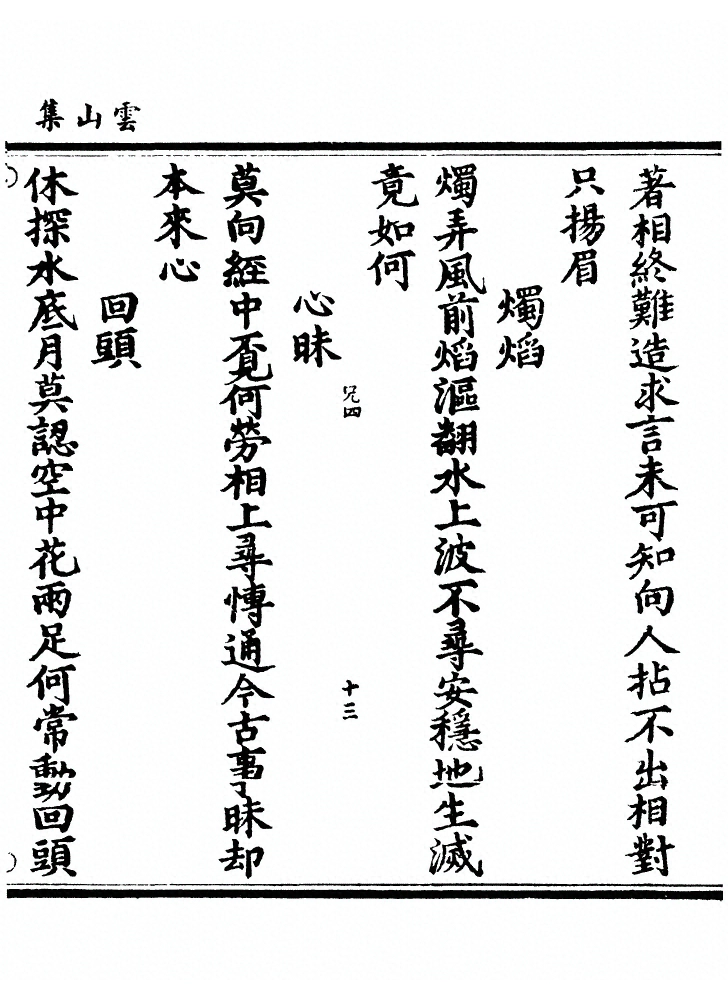 雲山集
著相終難造求言未可知向人拈不出相對
只揚眉
燭焰
燭弄風前焰漚翻水上波不尋安穩地生滅
竟如何
兄四
十三
心昧
莫向經中覓何勞相上尋慱通今古事了昧却
本來心
回頭
休探水底月莫認空中花兩足何常動回頭